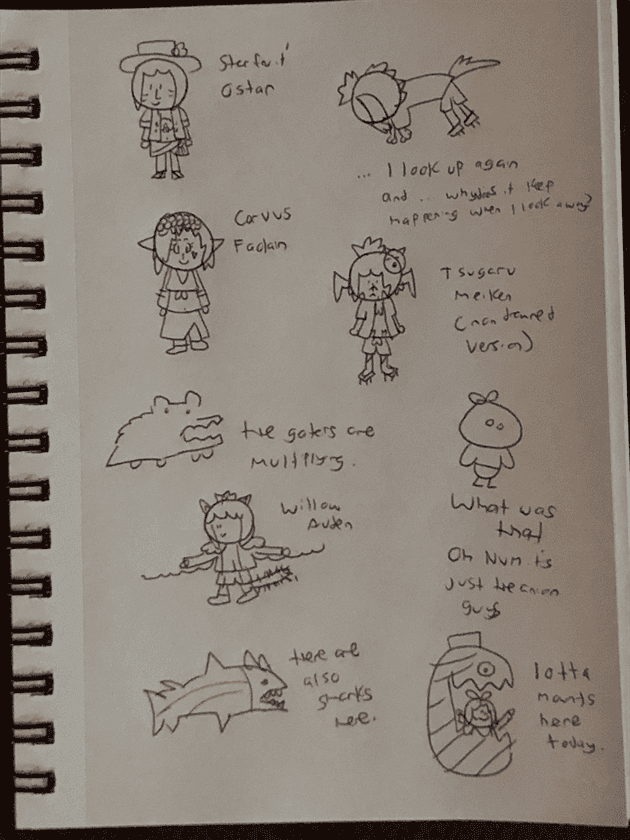 Starfruit
Ostar
... I look up again
and .. why does it keep
happening when I look away?
Corvus
Faolain
Tsugaru
Meiken
(non tanned
version)
the gators are
multiplying.
Willow
Auden
What was
that
Oh Num it's
just the onion
guys
there are
also
sharks
here.
lotta
mants
here
today.